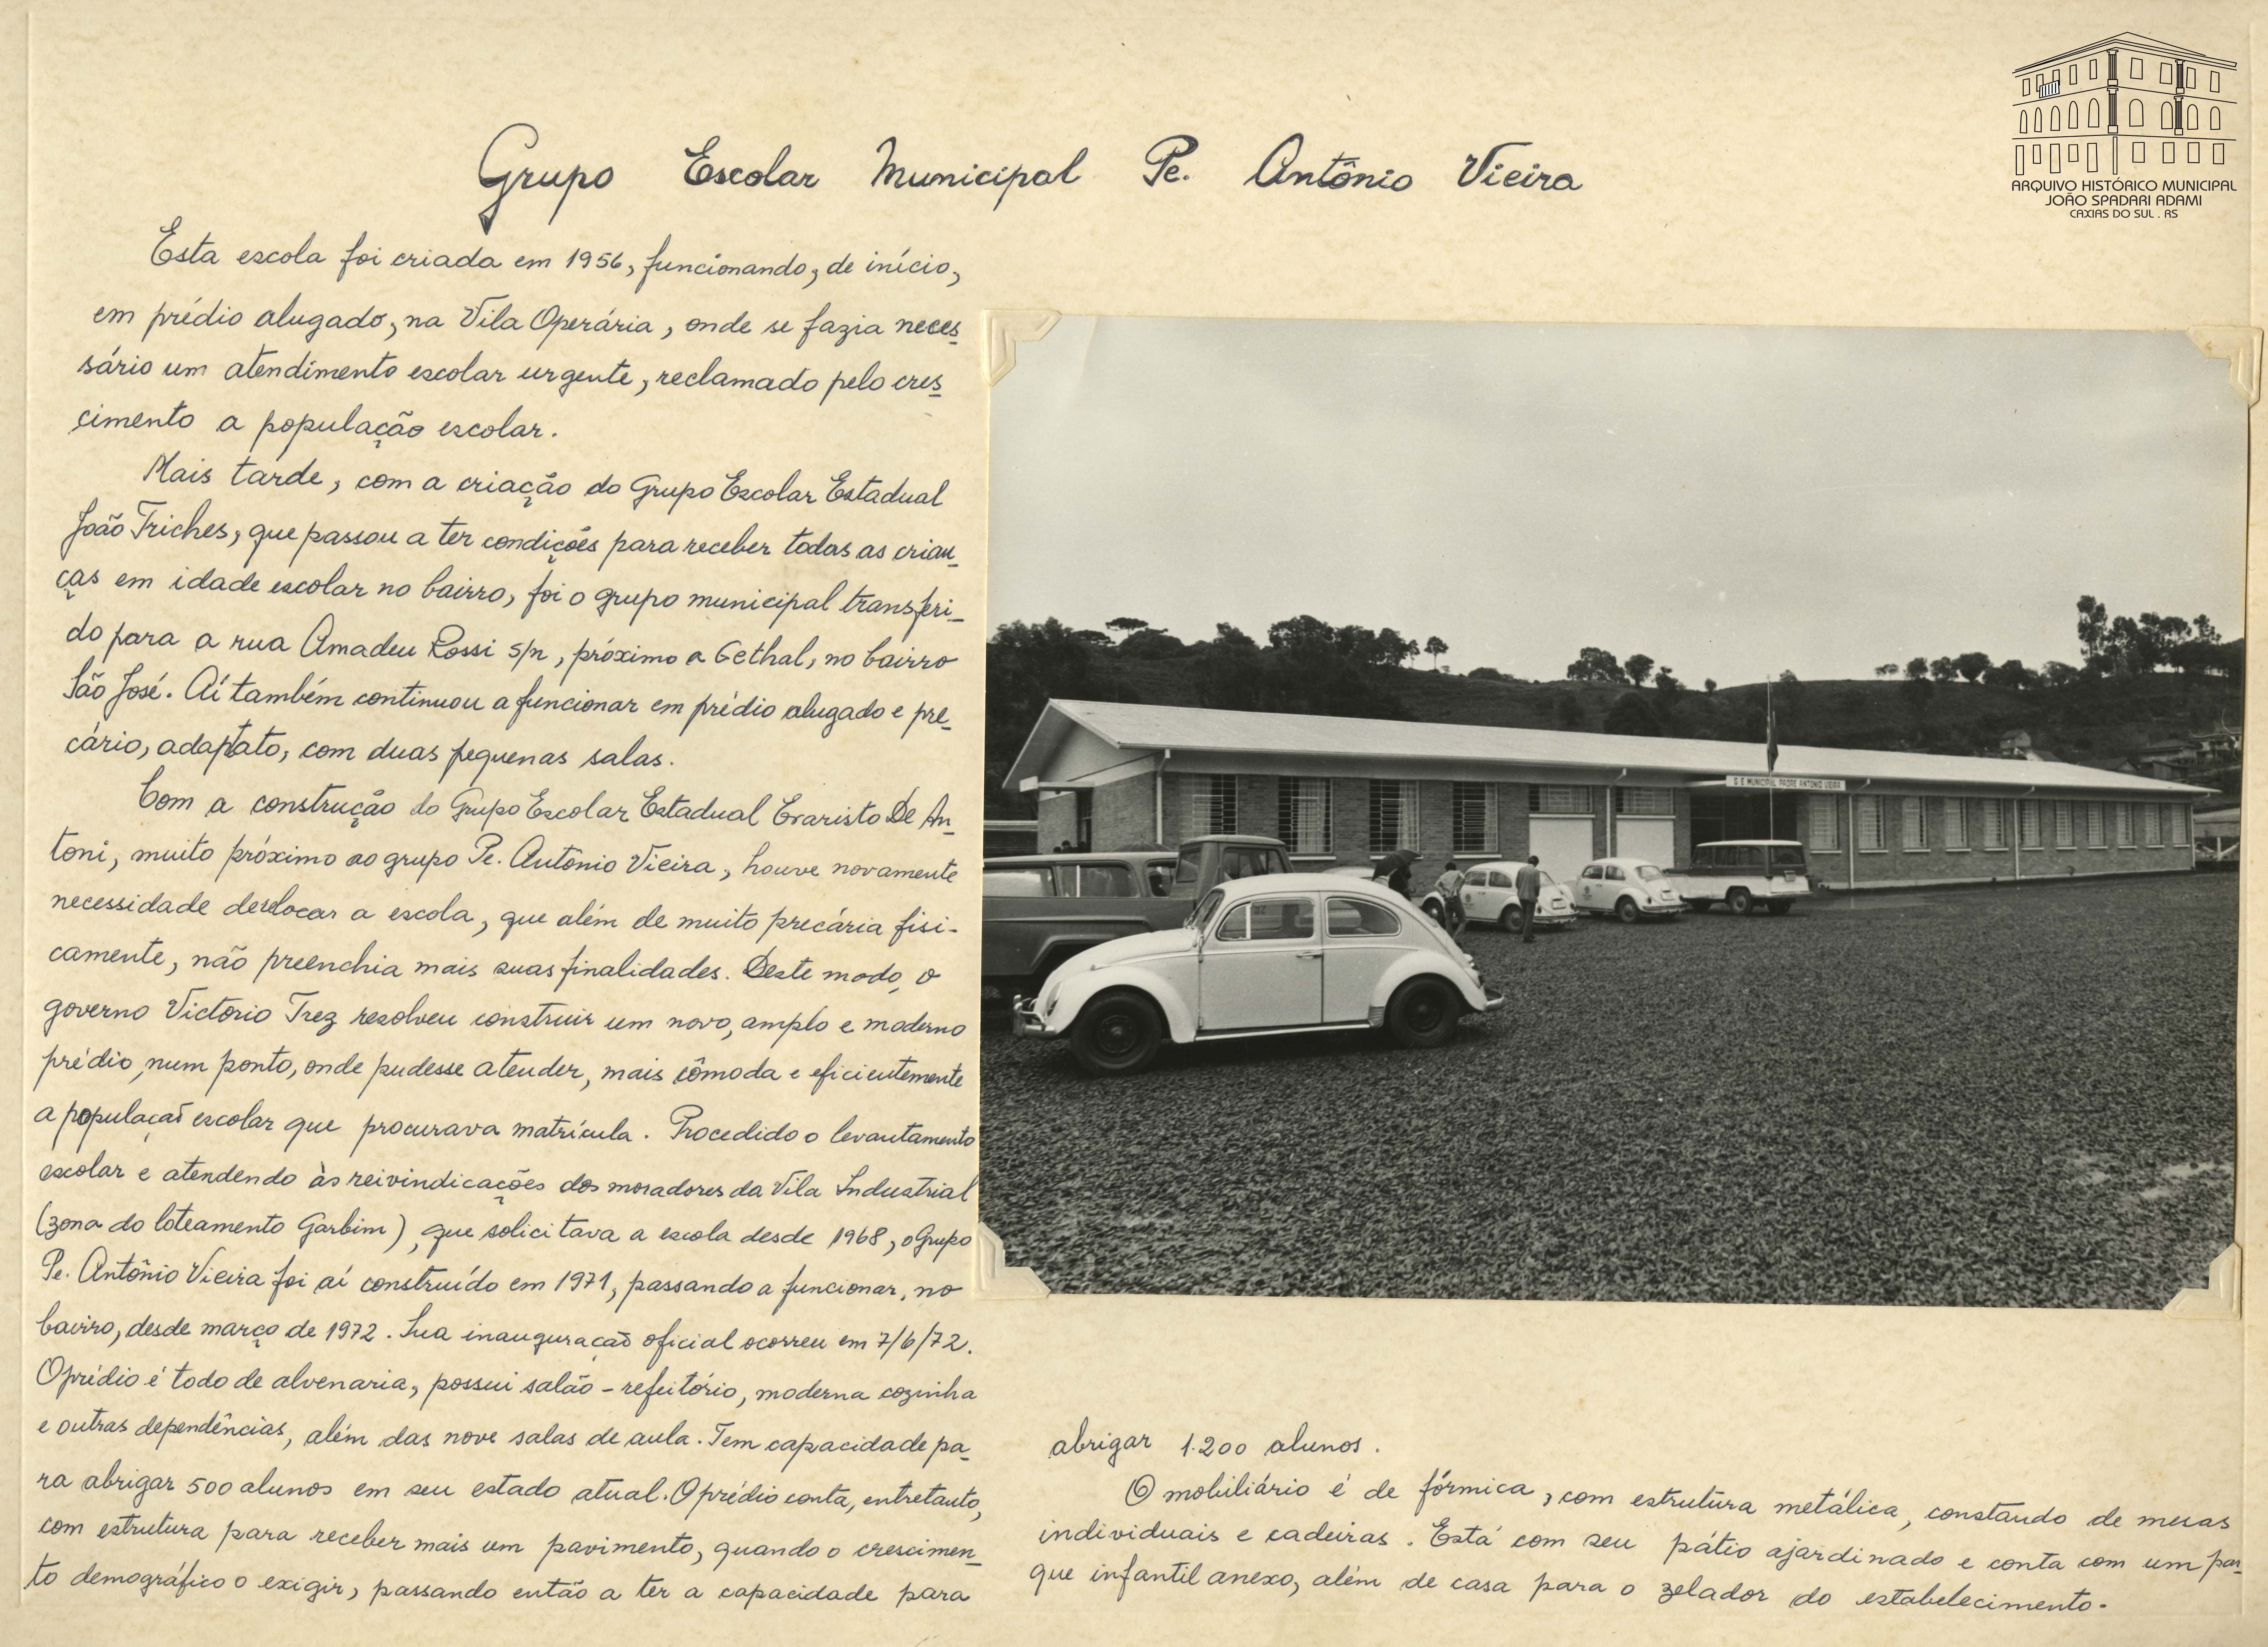 Grupo Escolar Municipal Pe. Antônio Vieira
ARQUIVO HISTÓRICO MUNICIPAL
JOÃO SPADARI ADAMI
CAXIAS DO SUL . RS
Esta escola foi criada em 1956, funcionando, de início,
em prédio alugado, na Vila Operária, onde se fazia neces
sário um atendimento escolar urgente, reclamado pelo cres
cimento a população escolar.
Mais tarde, com a criação do Grupo Escolar Estadual
João Triches, que passou a ter condições para receber todas as crian
ças em idade escolar no bairro, foi o grupo municipal transferi-
do para a rua Amadeu Rossi s/n, próximo a Gethal, no bairro
São José. Aí também continuou a funcionar em prédio alugado e pre-
cário, adaptato, com duas pequenas salas.
Com a construção do Grupo Escolar Estadual Evaristo De An-
toni, muito próximo ao grupo Pe. Antônio Vieira, houve novamente
necessidade deslocar a escola, que além de muito precária fisi-
camente, não preenchia mais suas finalidades. Deste modo, o
governo Victorio Trez resolveu construir um novo, amplo e moderno
prédio, num ponto, onde pudesse atender, mais cômoda e eficientemente
a população escolar que procurava matrícula. Procedido o levantamento
escolar e atendendo às reivindicações dos moradores da Vila Industrial
(zona do loteamento Garbim), que solicitava a escola desde 1968, o Grupo
Pe. Antônio Vieira foi aí construído em 1971, passando a funcionar, no
bairro, desde março de 1972. Sua inauguração oficial ocorreu em 7/6/72.
O prédio é todo de alvenaria, possui salão - refeitório, moderna cozinha
e outras dependências, além das nove salas de aula. Tem capacidade pa-
ra abrigar 500 alunos em seu estado atual. O prédio conta, entretanto,
com estrutura para receber mais um pavimento, quando o crescimen-
to demográfico o exigir, passando então a ter a capacidade para
G E MUNICIPAL PADRE ANTONIO VIEIRA
abrigar 1.200 alunos.
O mobiliário é de fórmica, com estrutura metálica, constando de mesas
individuais e cadeiras. Está com seu pátio ajardinado e conta com um par-
que infantil anexo, além de casa para o zelador do estabelecimento.